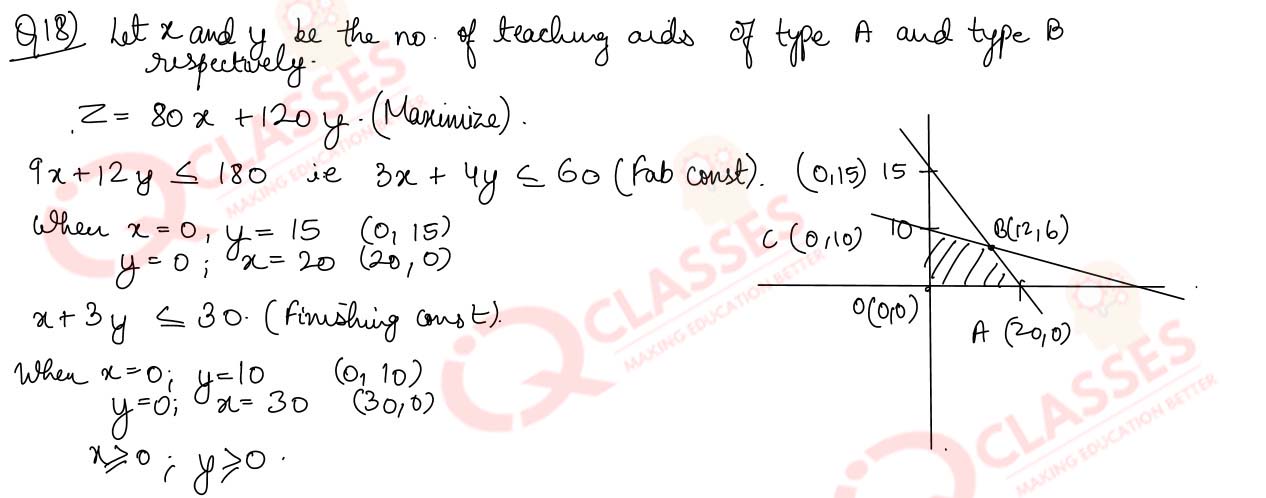 Q18) Let x and y be the no. of teaching aids of type A and type B
respectively.
Z = 80x + 120y. (Maximize).
9x + 12y ≤ 180 ie 3x + 4y ≤ 60 (Fab const).
When x = 0, y = 15 (0, 15)
y = 0 ; x = 20 (20, 0)
x + 3y ≤ 30. (Finishing const).
When x = 0; y = 10 (0, 10)
y = 0; x = 30 (30, 0)
x ≥ 0 ; y ≥ 0.
(0,15) 15
C (0,10) 10
B(12,6)
O(0,0)
A (20,0)
CLASSES
MAKING EDUCATION BETTER
CLASSES
MAKING EDUCATION BETTER
CLASSES
MAKING EDUCATION BETTER